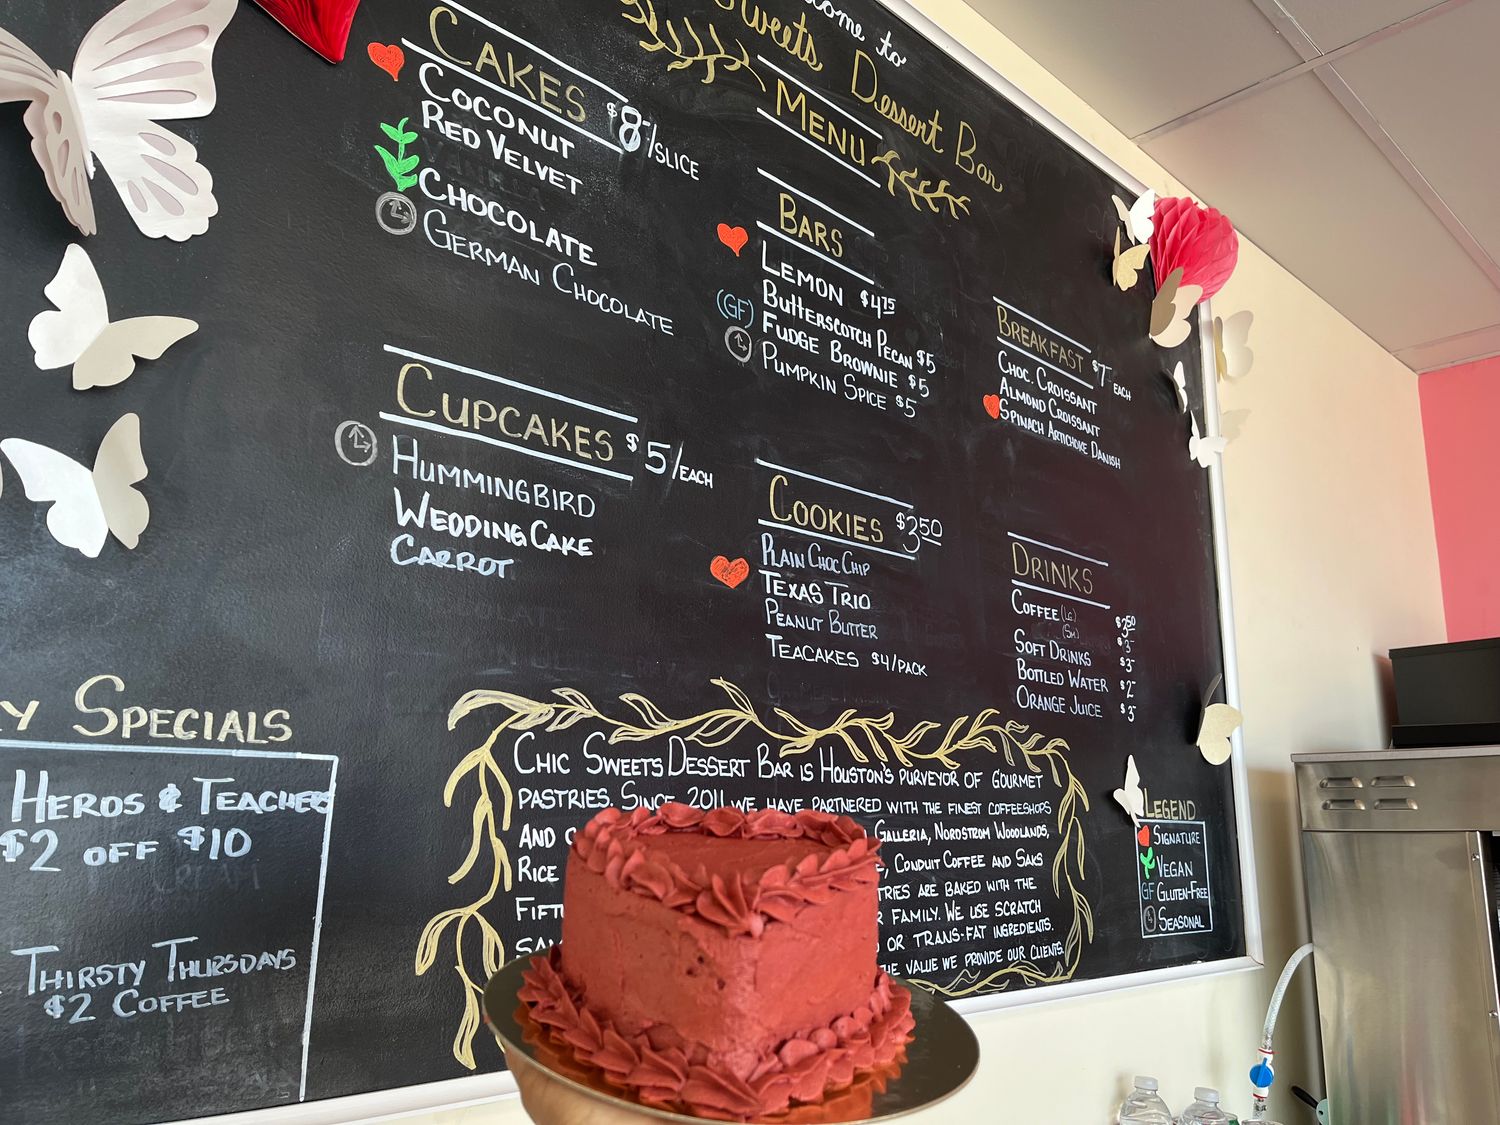 come to
Sweets Dessert Bar
MENU
CAKES $8/SLICE
COCONUT
RED VELVET
CHOCOLATE
GERMAN CHOCOLATE
CUPCAKES $5/EACH
HUMMINGBIRD
WEDDING CAKE
CARROT
BARS
LEMON $4.75
BUTTERSCOTCH PECAN $5
(GF) FUDGE BROWNIE $5
PUMPKIN SPICE $5
COOKIES $3.50
PLAIN CHOC CHIP
TEXAS TRIO
PEANUT BUTTER
TEACAKES $4/PACK
BREAKFAST $7 EACH
CHOC. CROISSANT
ALMOND CROISSANT
SPINACH ARTICHOKE DANISH
DRINKS
COFFEE (LG) $3.50
(SM) $3
SOFT DRINKS $3
BOTTLED WATER $2
ORANGE JUICE $3
Y SPECIALS
HEROS & TEACHERS
$2 OFF $10
THIRSTY THURSDAYS
$2 COFFEE
CHIC SWEETS DESSERT BAR IS HOUSTON'S PURVEYOR OF GOURMET
PASTRIES. SINCE 2011 WE HAVE PARTNERED WITH THE FINEST COFFEESHOPS
AND GALLERIA, NORDSTROM WOODLANDS,
RICE CONDUIT COFFEE AND SAKS
FIFT TRIES ARE BAKED WITH THE
FAMILY. WE USE SCRATCH
OR TRANS-FAT INGREDIENTS.
THE VALUE WE PROVIDE OUR CLIENTS.
LEGEND
SIGNATURE
VEGAN
GF GLUTEN-FREE
SEASONAL